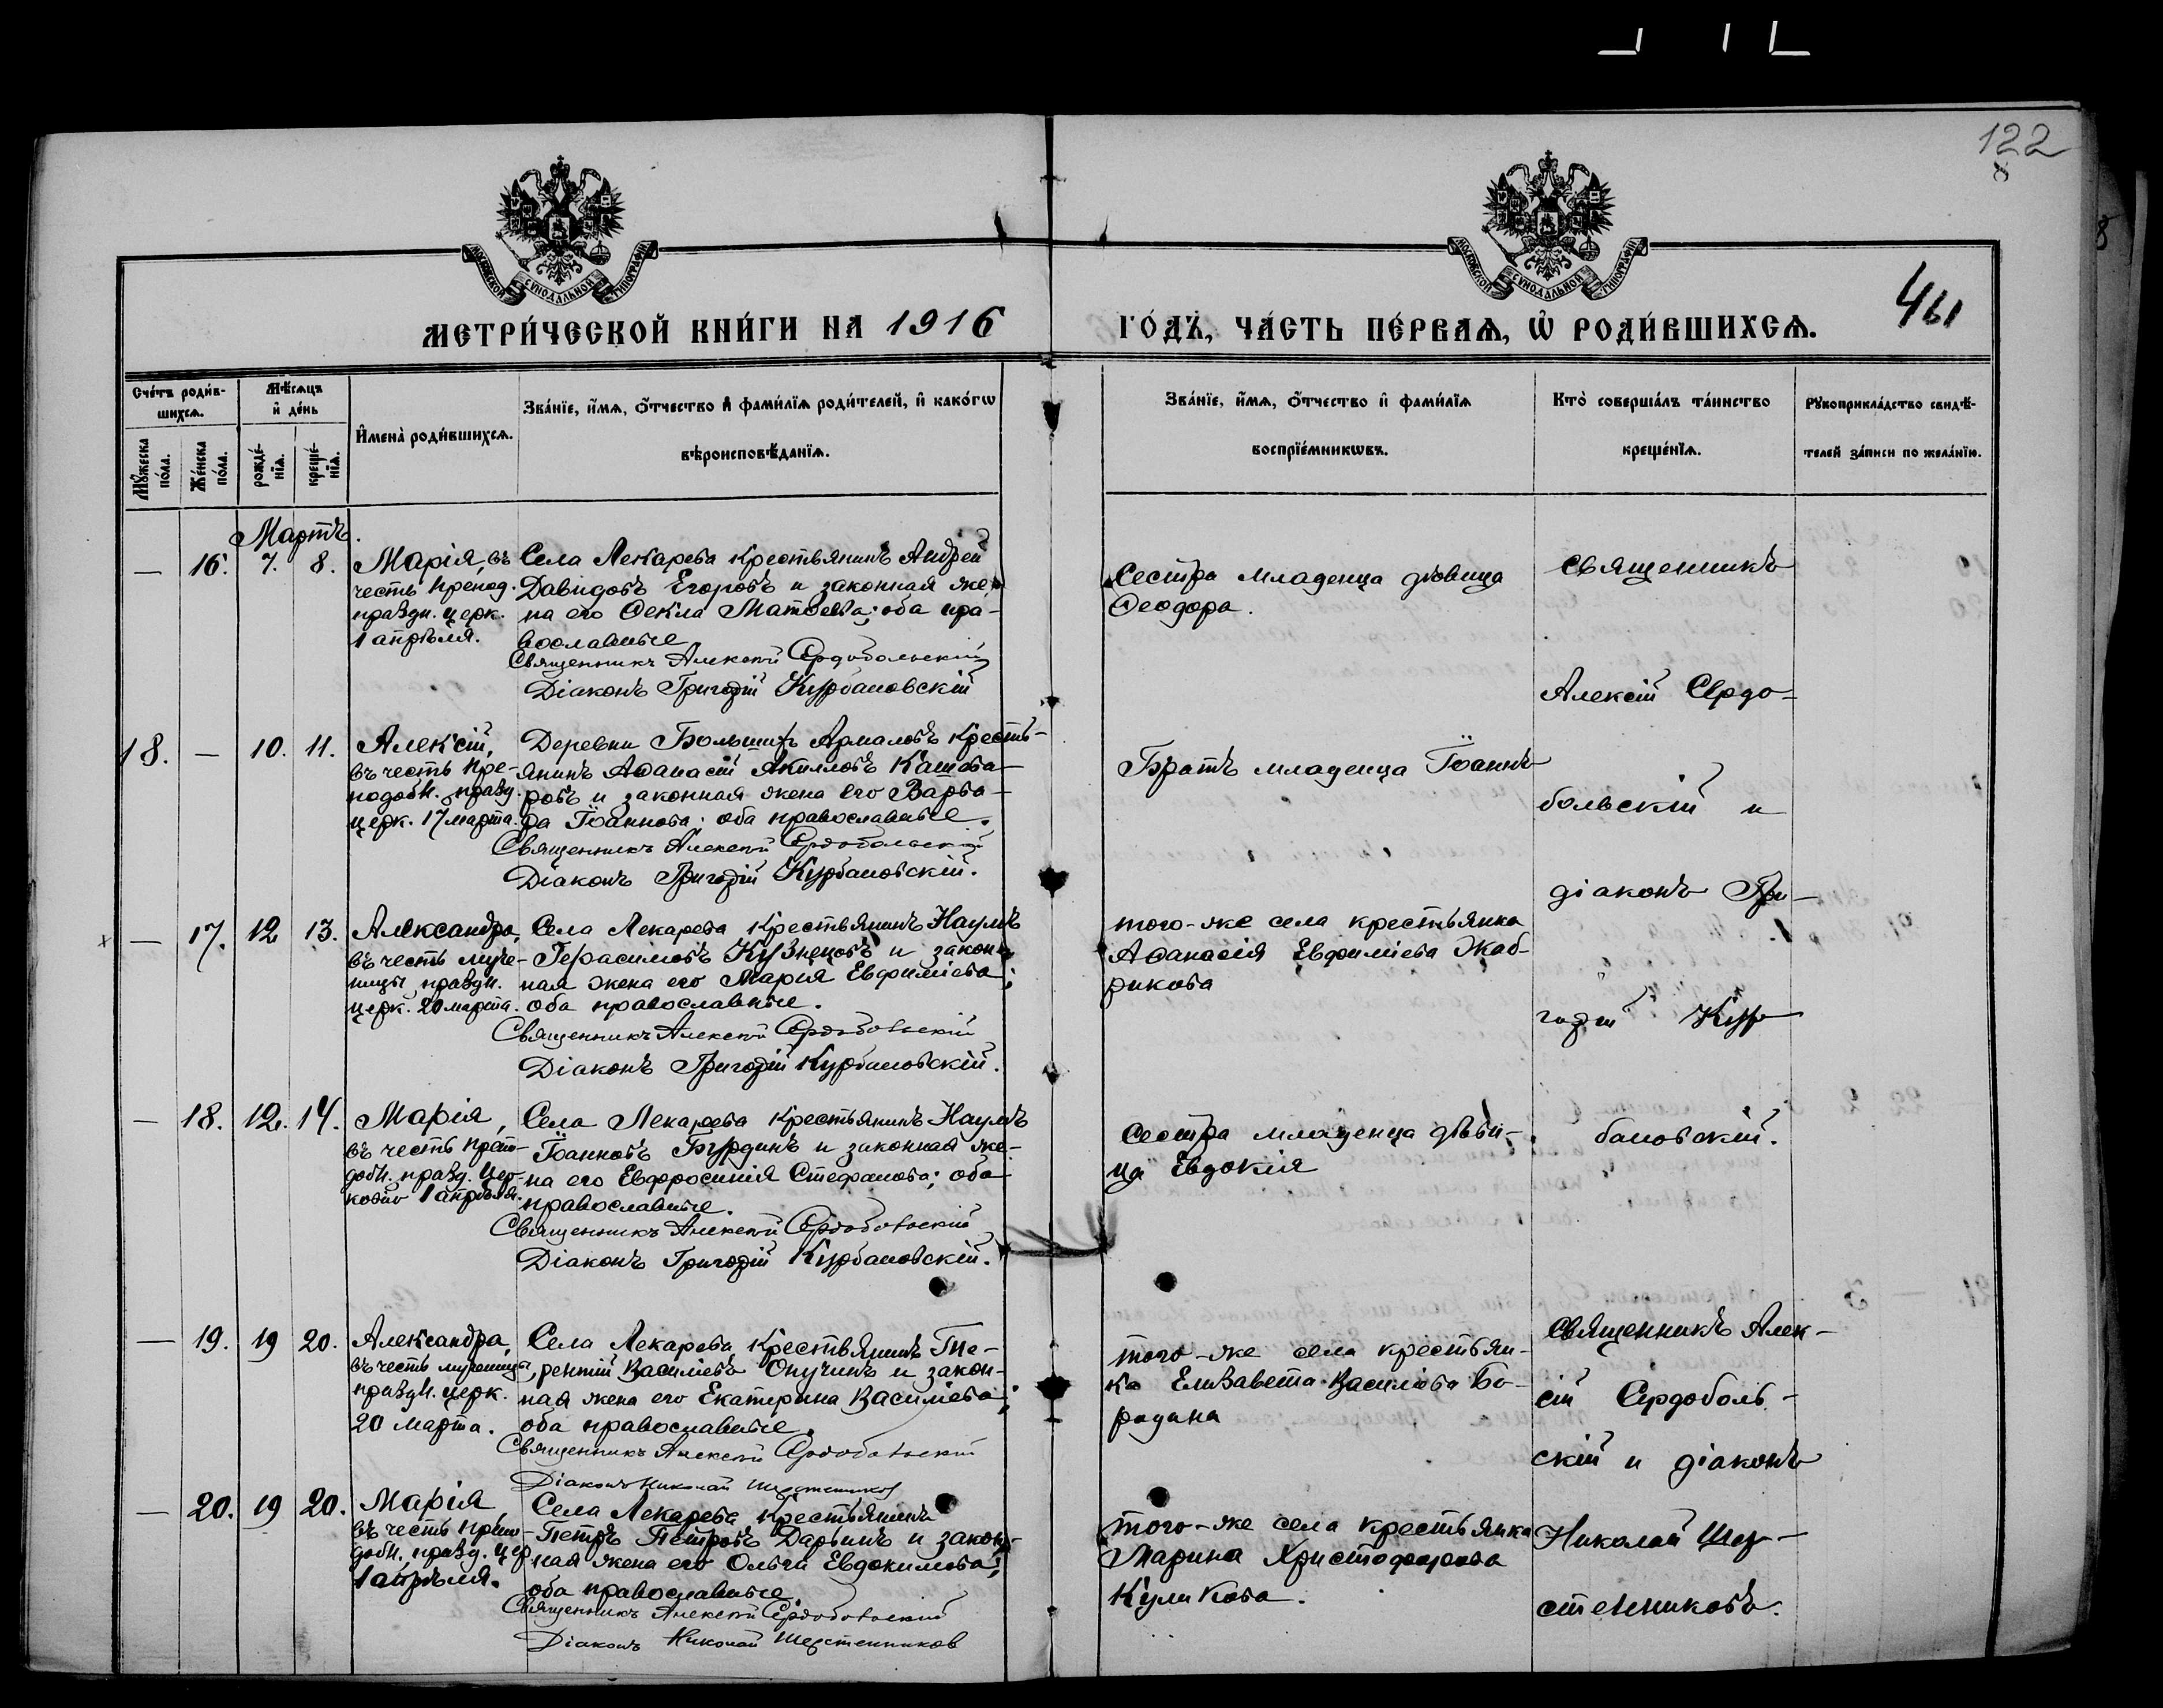 122
МОСКОВСКОЙ СѴНОДАЛЬНОЙ ТИПОГРАФІИ
МОСКОВСКОЙ СѴНОДАЛЬНОЙ ТИПОГРАФІИ
МЕТРИ́ЧЕСКОЙ КНИ́ГИ НА 1916
ГО́ДЪ, ЧА́СТЬ ПЕ́РВАѦ, Ѡ҆ РОДИ́ВШИХСѦ.
Сче́тъ роди́в-
шихсѧ.
Мꙋ́жеска по́ла.
Же́нска по́ла.
Мѣ́сѧцъ
и҆ де́нь
рожде́-
нїѧ.
креще́-
нїѧ.
И҆мена̀ роди́вшихсѧ.
Зва́нїе, и҆́мѧ, ѻ҆́тчество и҆ фами́лїѧ роди́телей, и҆ како́гѡ
вѣроисповѣ́данїѧ.
Зва́нїе, и҆́мѧ, ѻ҆́тчество и҆ фами́лїѧ
воспрїе́мникѡвъ.
Кто̀ соверша́лъ та́инство
креще́нїѧ.
Рꙋкоприкла́дство свидѣ́-
телей за́писи по жела́нїю.
Мартъ.
— 16. 7. 8.
Марія, въ
честь препод.
праздн. церк.
1 апрѣля.
Села Лекарева крестьянинъ Андрей
Давидовъ Егоровъ и законная же-
на его Ѳекла Матѳеева; оба пра-
вославные
Священникъ Алексій Сердобольскій
Діаконъ Григорій Курбановскій
Сестра младенца дѣвица
Ѳеодора.
18. — 10. 11.
Алексій,
въ честь пре-
подобн. празд.
церк. 17 марта.
Деревни Большихъ Армаловъ кресть-
янинъ Аѳанасій Акиловъ Кашева-
ровъ и законная жена его Варва-
ра Іоаннова; оба православные.
Священникъ Алексій Сердобольскій
Діаконъ Григорій Курбановскій.
Братъ младенца Іоаннъ
— 17. 12 13.
Александра,
въ честь муче-
ницы, праздн.
церк. 20 марта.
Села Лекарева крестьянинъ Наумъ
Герасимовъ Кузнецовъ и закон-
ная жена его Марія Евфиміева;
оба православные.
Священникъ Алексій Сердобольскій
Діаконъ Григорій Курбановскій.
того-же села крестьянка
Аѳанасія Евфиміева Жаб-
рикова
— 18. 12. 14.
Марія,
въ честь преп-
добн. празд. цер-
ковію 1 апрѣля.
Села Лекарева крестьянинъ Наумъ
Іоанновъ Бурдинъ и законная же-
на его Евфросинія Стефанова; оба
православные.
Священникъ Алексій Сердобольскій
Діаконъ Григорій Курбановскій.
Сестра младенца дѣви-
ца Евдокія
Священникъ
Алексій Сердо-
больскій и
діаконъ Гри-
горій Кур-
бановскій.
— 19. 19 20.
Александра,
въ честь мученицы,
праздн. церк.
20 марта.
Села Лекарева крестьянинъ Те-
рентій Василіевъ Опучинъ и закон-
ная жена его Екатерина Василіева;
оба православные.
Священникъ Алексій Сердобольскій
Діаконъ Николай Шерстенников
того-же села крестьян-
ка Елизавета Василіева Бо-
родина
— 20. 19 20.
Марія
въ честь препо-
добн. празд. цер
1 апрѣля.
Села Лекарева крестьянинъ
Петръ Петровъ Дарьинъ и закон-
ная жена его Ольга Евдокимова;
оба православные
Священникъ Алексій Сердобольскій
Діаконъ Николай Шерстенников
того-же села крестьянка
Марина Христофорова
Куликова.
Священникъ Алек-
сій Сердоболь-
скій и діаконъ
Николай Шер-
стенниковъ.